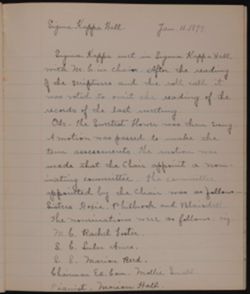 Sigma Kappa Hall Jan. 11. 1897.
Sigma Kappa met in Sigma Kappa Hall
with M. E. in chair. After the reading
of the Scriptures and the roll call it
was voted to omit the reading of the
records of the last meeting.
Ode: the Sweetest Flower was then sung
A motion was passed to make the
term assessments. The motion was
made that the Chair appoint a nom-
inating committee. The committee
appointed by the Chair was as follows.
Sisters Philbrook and
The nominations were as follows. viz
M. E. Rachel Foster
S. E.
S. S. Marion
Chairman Ed. Com. Mollie Small
Pianist. Mariam Hall.